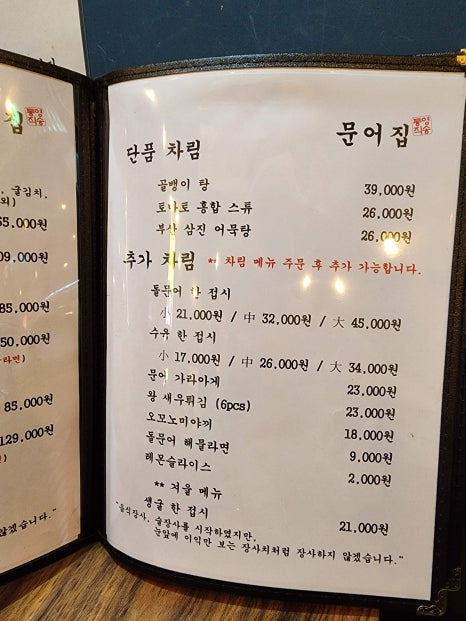 집
통영
직송
, 굴김치,
외)
65,000원
09,000원
85,000원
50,000원
라면)
85,000원
129,000원
않겠습니다."
문어집
통영
직송
단품 차림
골뱅이 탕 39,000원
토마토 홍합 스튜 26,000원
부산 삼진 어묵탕 26,000원
추가 차림 ** 차림 메뉴 주문 후 추가 가능합니다.
돌문어 한 접시
小 21,000원 / 中 32,000원 / 大 45,000원
수육 한 접시
小 17,000원 / 中 26,000원 / 大 34,000원
문어 가라아게 23,000원
왕 새우튀김 (6pcs) 23,000원
오꼬노미야끼 18,000원
돌문어 해물라면 9,000원
레몬슬라이스 2,000원
** 겨울 메뉴
생굴 한 접시 21,000원
"음식장사, 술장사를 시작하였지만,
눈앞에 이익만 보는 장사치처럼 장사하지 않겠습니다."